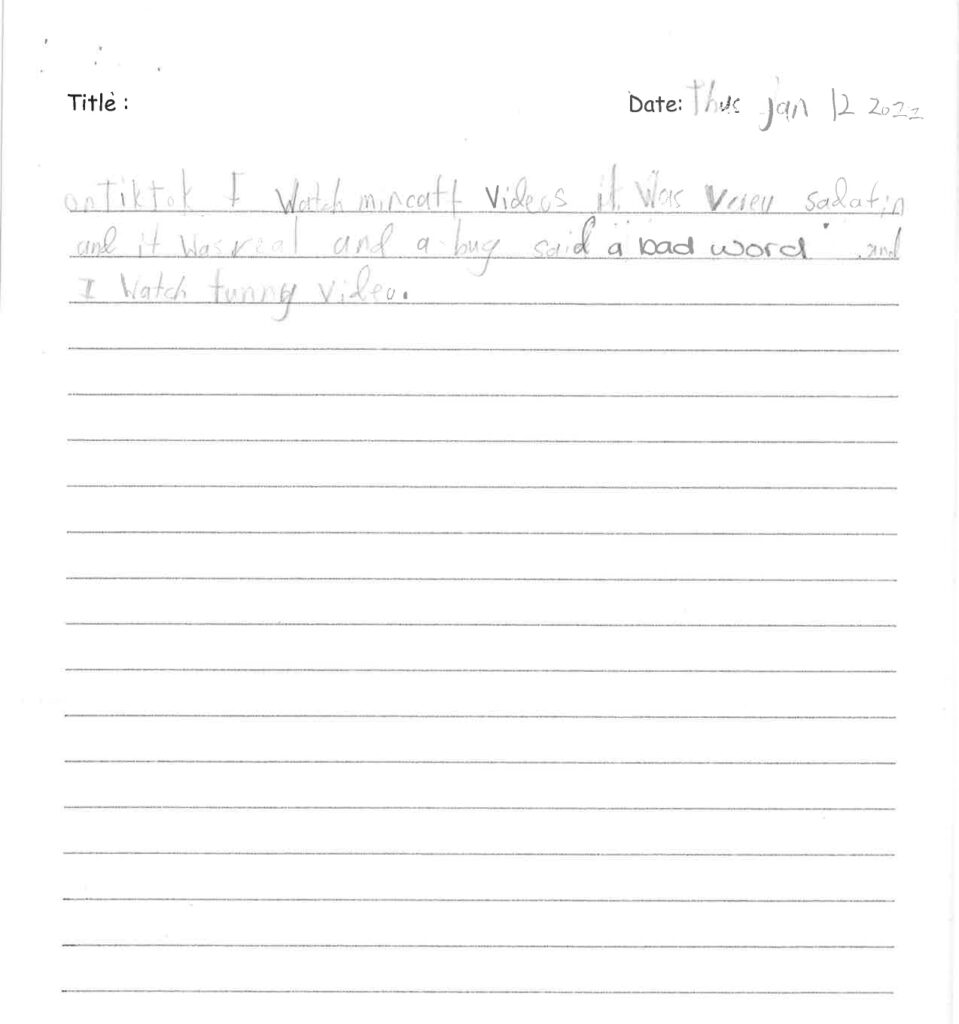 Title :
Date: Thus Jan 12 2022
on Tiktok I Watch mincatt Videos it Was Veiey sadatin
and it Was real and a bug said a bad word and
I Watch tunny video.